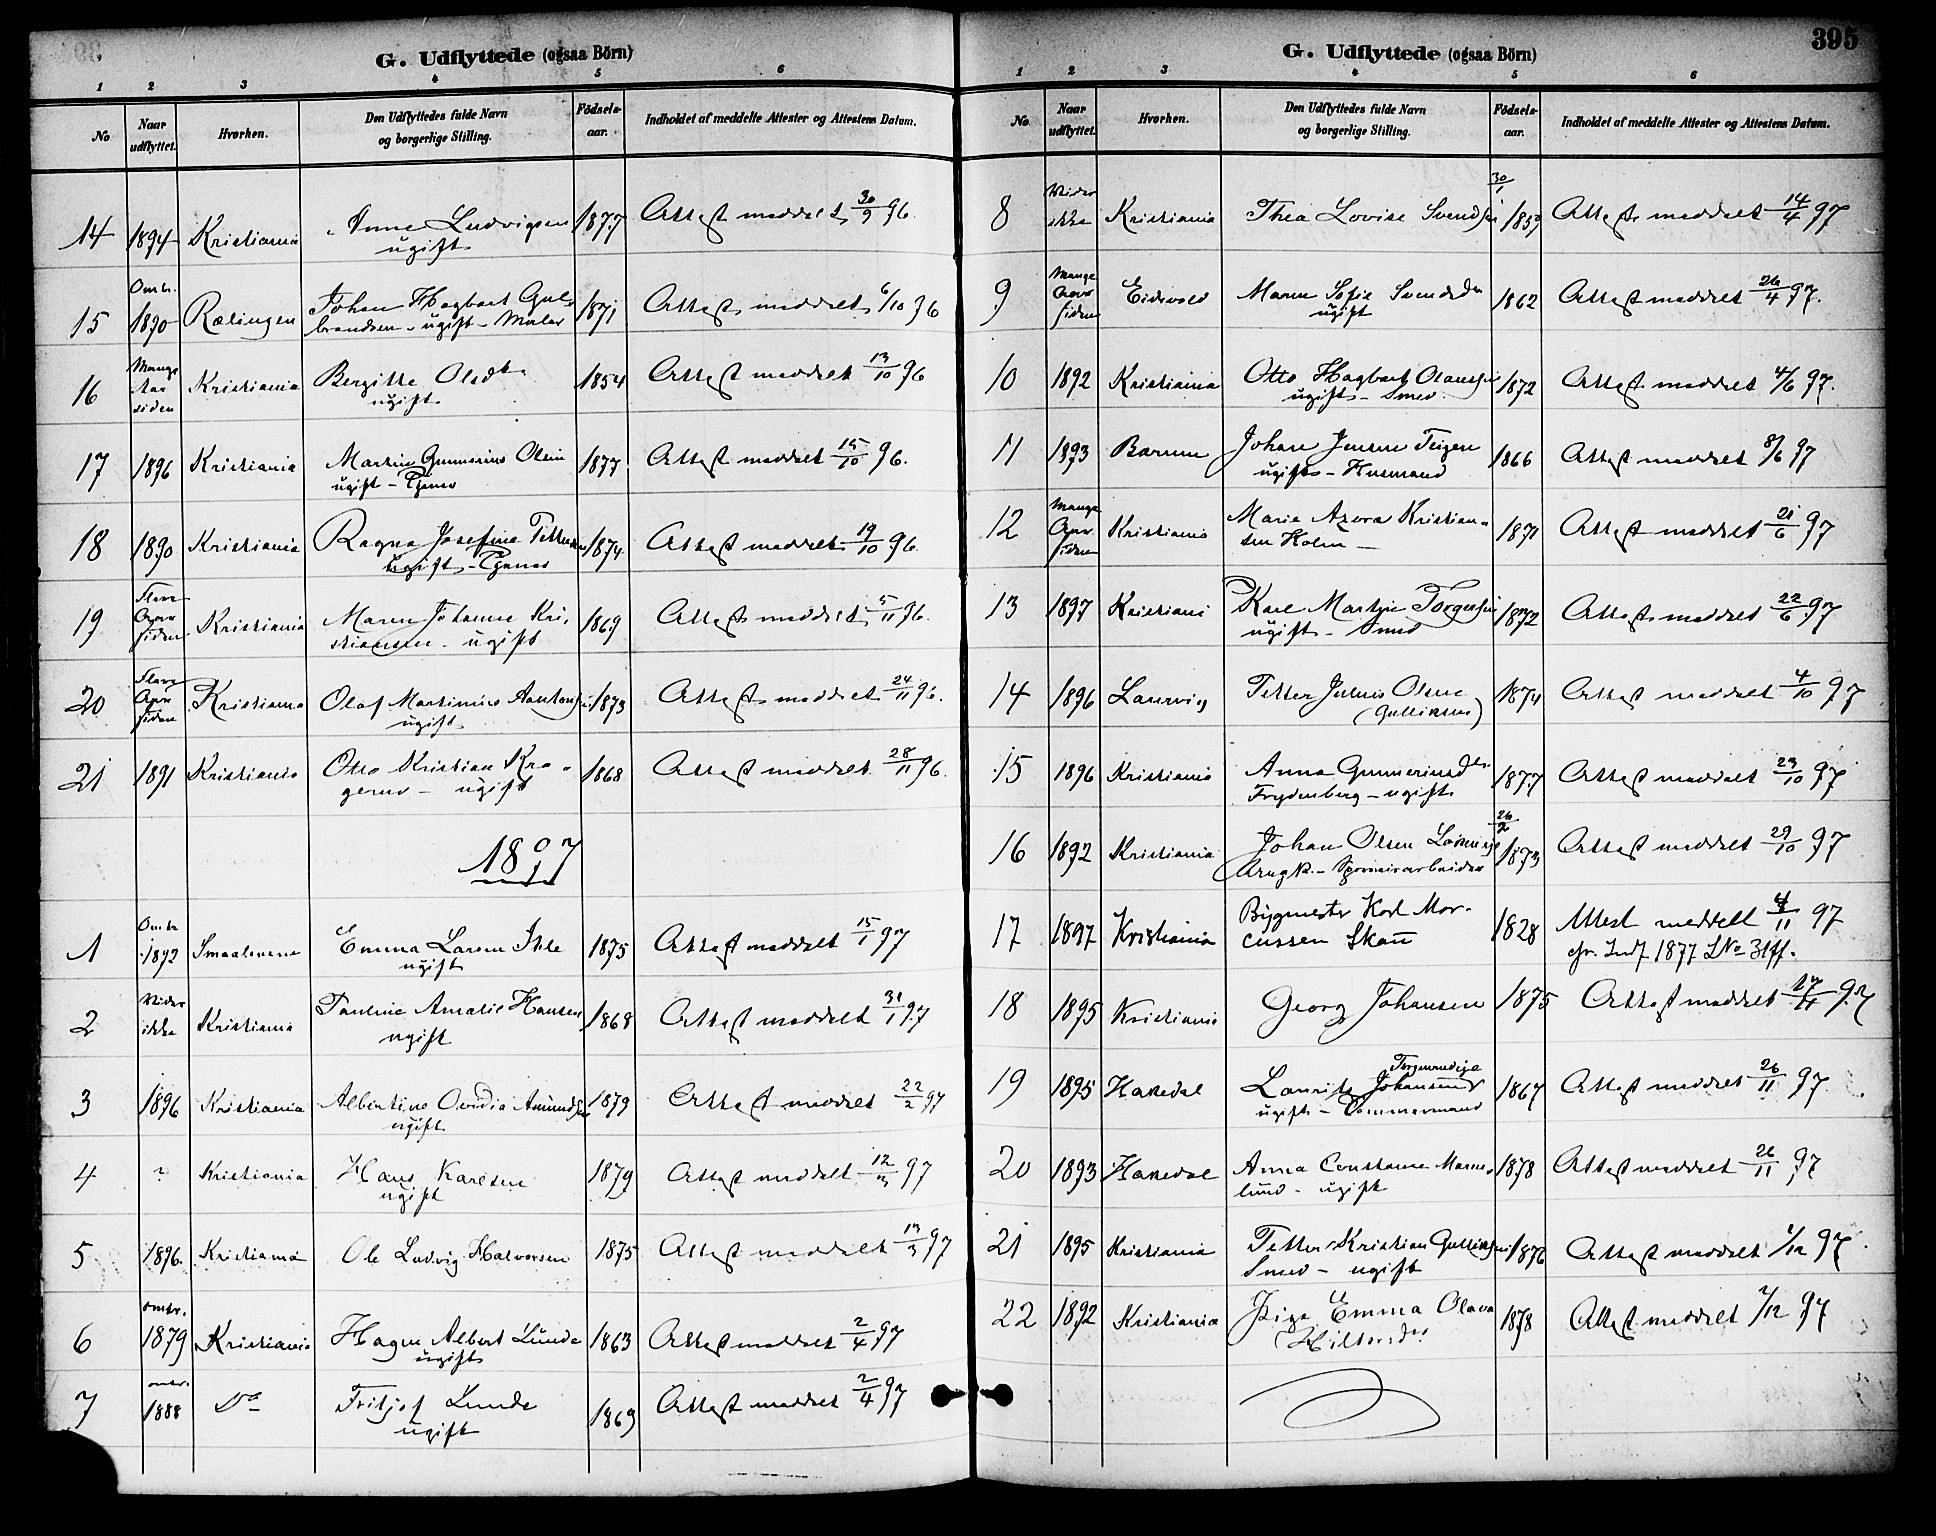 G. Udflyttede (ogsaa Börn)
1 2 3 4 5 6
No Naar udflyttet. Hvorhen. Den Udflyttedes fulde Navn og borgerlige Stilling. Födsels-aar. Indholdet af meddelte Attester og Attestens Datum.
14 1894 Kristiania Anne Ludvigsen 1877 Attest meddelt 30/9 96.
ugift
15 Omtr. 1890 Rælingen Johan Hagbart Gul- 1871 Attest meddelt 6/10 96
brandsen - ugift - Maler
16 Mange Aar siden Kristiania Bergitte Olsdtr 1854 Attest meddelt 13/10 96
ugift.
17 1896 Kristiania Martin Gunnerius Olsen 1877 Attest meddelt 15/10 96.
ugift - Tjener
18 1890 Kristiania Ragna Josefine Pettersen 1874 Attest meddelt 19/10 96.
ugift - Tjener
19 Flere Aar siden Kristiania Maren Johanne Kri- 1869 Attest meddelt 5/11 96.
stiansen - ugift
20 Flere Aar siden Kristiania Olaf Martinius 1873 Attest meddelt 24/11 96.
ugift
21 1891 Kristiania Otto Kristian Kra- 1868 Attest meddelt 28/11 96.
gerud - ugift
1897
1 Omtr 1892 Smaalenene Emma Laren 1875 Attest meddelt 15/1 97
ugift
2 Vides ikke Kristiania Pauline Amalie Hansen 1868 Attest meddelt 31/1 97
ugift
3 1896 Kristiania Albertine Ovidia Amundsen 1879 Attest meddelt 22/2 97
ugift
4 ? Kristiania Hans Karlsen 1879 Attest meddelt 12/3 97
ugift
5 1896. Kristiania Ole Ludvig Halvorsen 1875 Attest meddelt 13/3 97
6 omtr. 1879 Kristiania Hagen Albert Lunde 1863 Attest meddelt 2/4 97
ugift
7 omtr. 1888 Do Fritjof Lunde 1869 Attest meddelt 2/4 97
ugift
395
G. Udflyttede (ogsaa Börn)
1 2 3 4 5 6
No. Naar udflyttet. Hvorhen. Den Udflyttedes fulde Navn og borgerlige Stilling. Födsels-aar. Indholdet af meddelte Attester og Attestens Datum.
8 Vides ikke Kristiania Thea Lovise Svendsen 30/1 1859 Attest meddelt 14/4 97
9 Mange Aar siden Eidsvold Maren Sofie Svendsdr 1862 Attest meddelt 26/4 97.
ugift
10 1892 Kristiania Otto Hagbart Olausen 1872 Attest meddelt 4/6 97.
ugift - Smed
11 1893 Bærum Johan Jensen Teigen 1866 Attest meddelt 8/6 97
ugift - Husmand
12 Mange Aar siden Kristiania Marie Azora Kristian- 1871 Attest meddelt 21/6 97
sen Holm -
13 1897 Kristiania Karl Martin Torgersen 1872 Attest meddelt 22/6 97
ugift - Smed
14 1896 Laurvig Petter Julius Olsen 1874 Attest meddelt 4/10 97
(Gulliksen)
15 1896 Kristiania Anna Gunneriusdtr 1877 Attest meddelt 29/10 97
Frydenberg - ugift
16 1892 Kristiania Johan Olsen 26/2 1873 Attest meddelt 29/10 97
17 1897 Kristiania Bygmester Karl Mar- 1828 Attest meddelt 4/11 97
cussen Skau cfr. Indf. 1877 LNo 31ff.
18 1895 Kristiania Georg Johansen 1875 Attest meddelt 97
19 1895 Hakedal Laurits Johansen 1867 Attest meddelt 26/11 97
ugift - Tømmermand
20 1893 Hakedal Anna Constanse 1878 Attest meddelt 26/11 97
lund - ugift
21 1895 Kristiania Petter Kristian Gulliksen 1876 Attest meddelt 1/12 97
Smed - ugift
22 1892 Kristiania Pige Emma Olava 1878 Attest meddelt 7/12 97